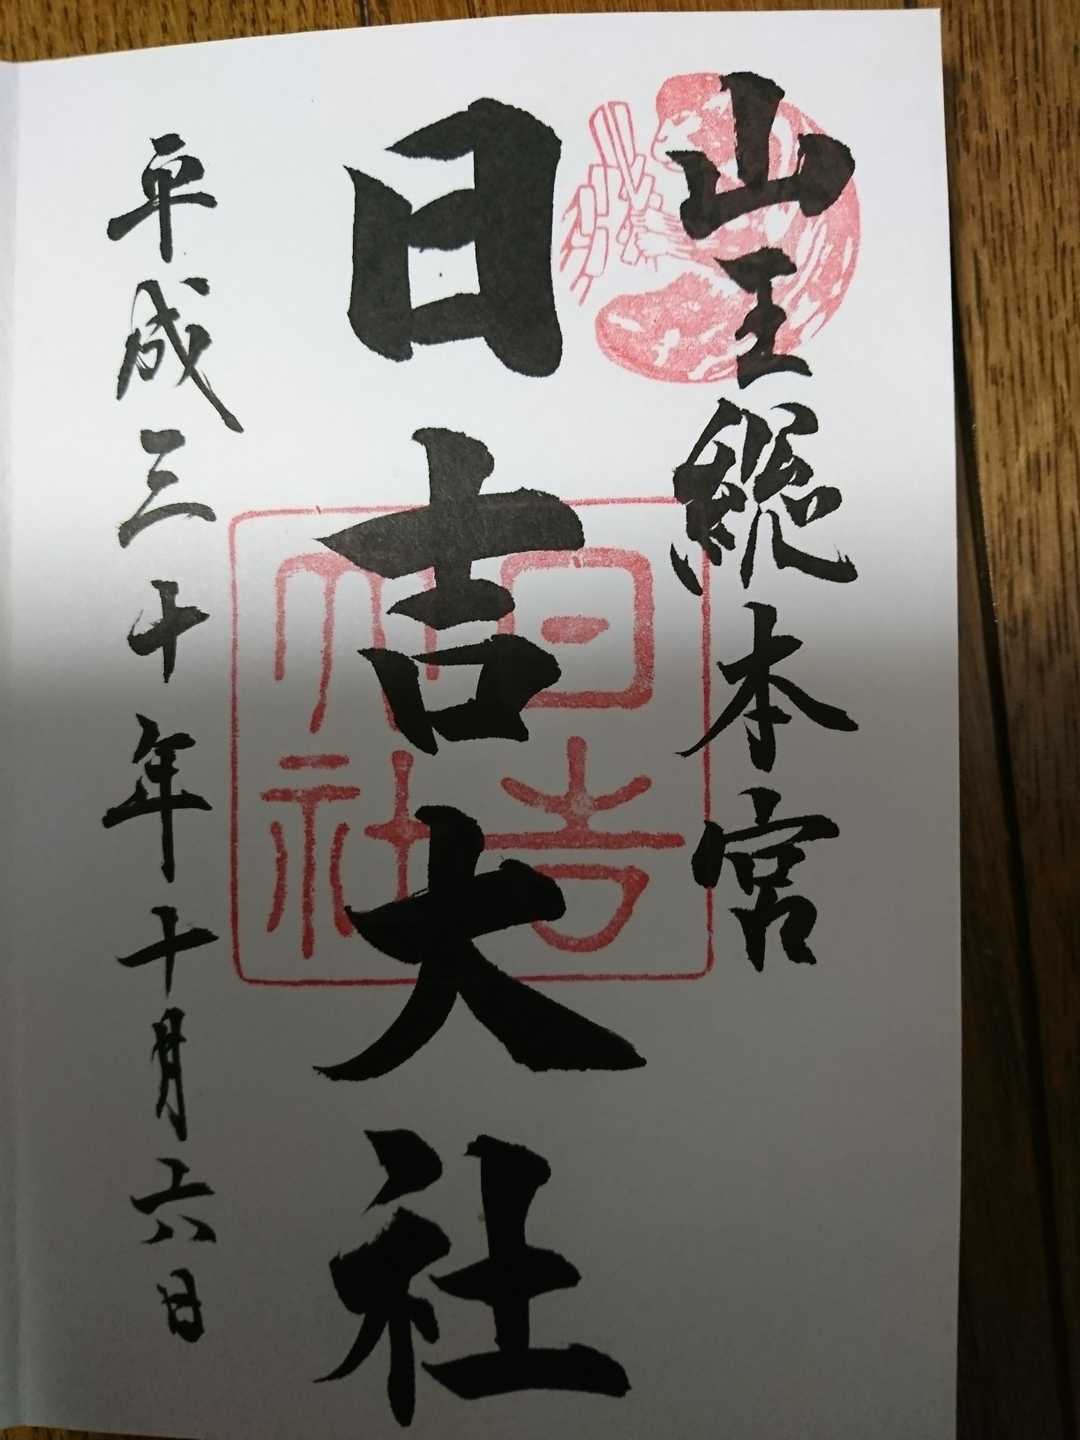 山王総本宮
日吉大社
平成三十年十月六日
日吉
大社